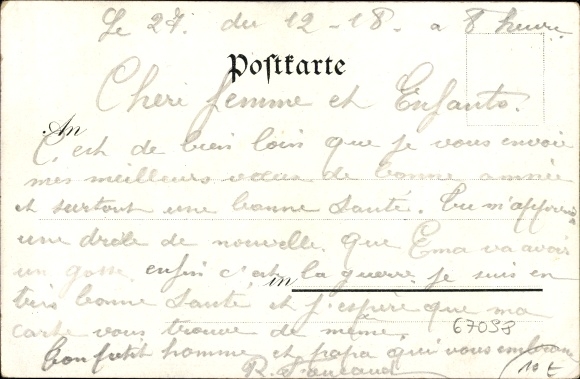 Le 27. du 12-18. a 8 heure
Postkarte
Cheri femme et Enfants.
An
C'est de bien loin que je vous envoie
mes meilleurs vœux de bonne année
et surtout une bonne santé. Tu m'apprend
une drole de nouvelle. que Ema va avoir
un gosse. enfin c'est la guerre. je suis en
in
très bonne santé et j'espère que ma
carte vous trouve de même.
67093
ton petit homme et papa qui vous embrasse
R.
10 t